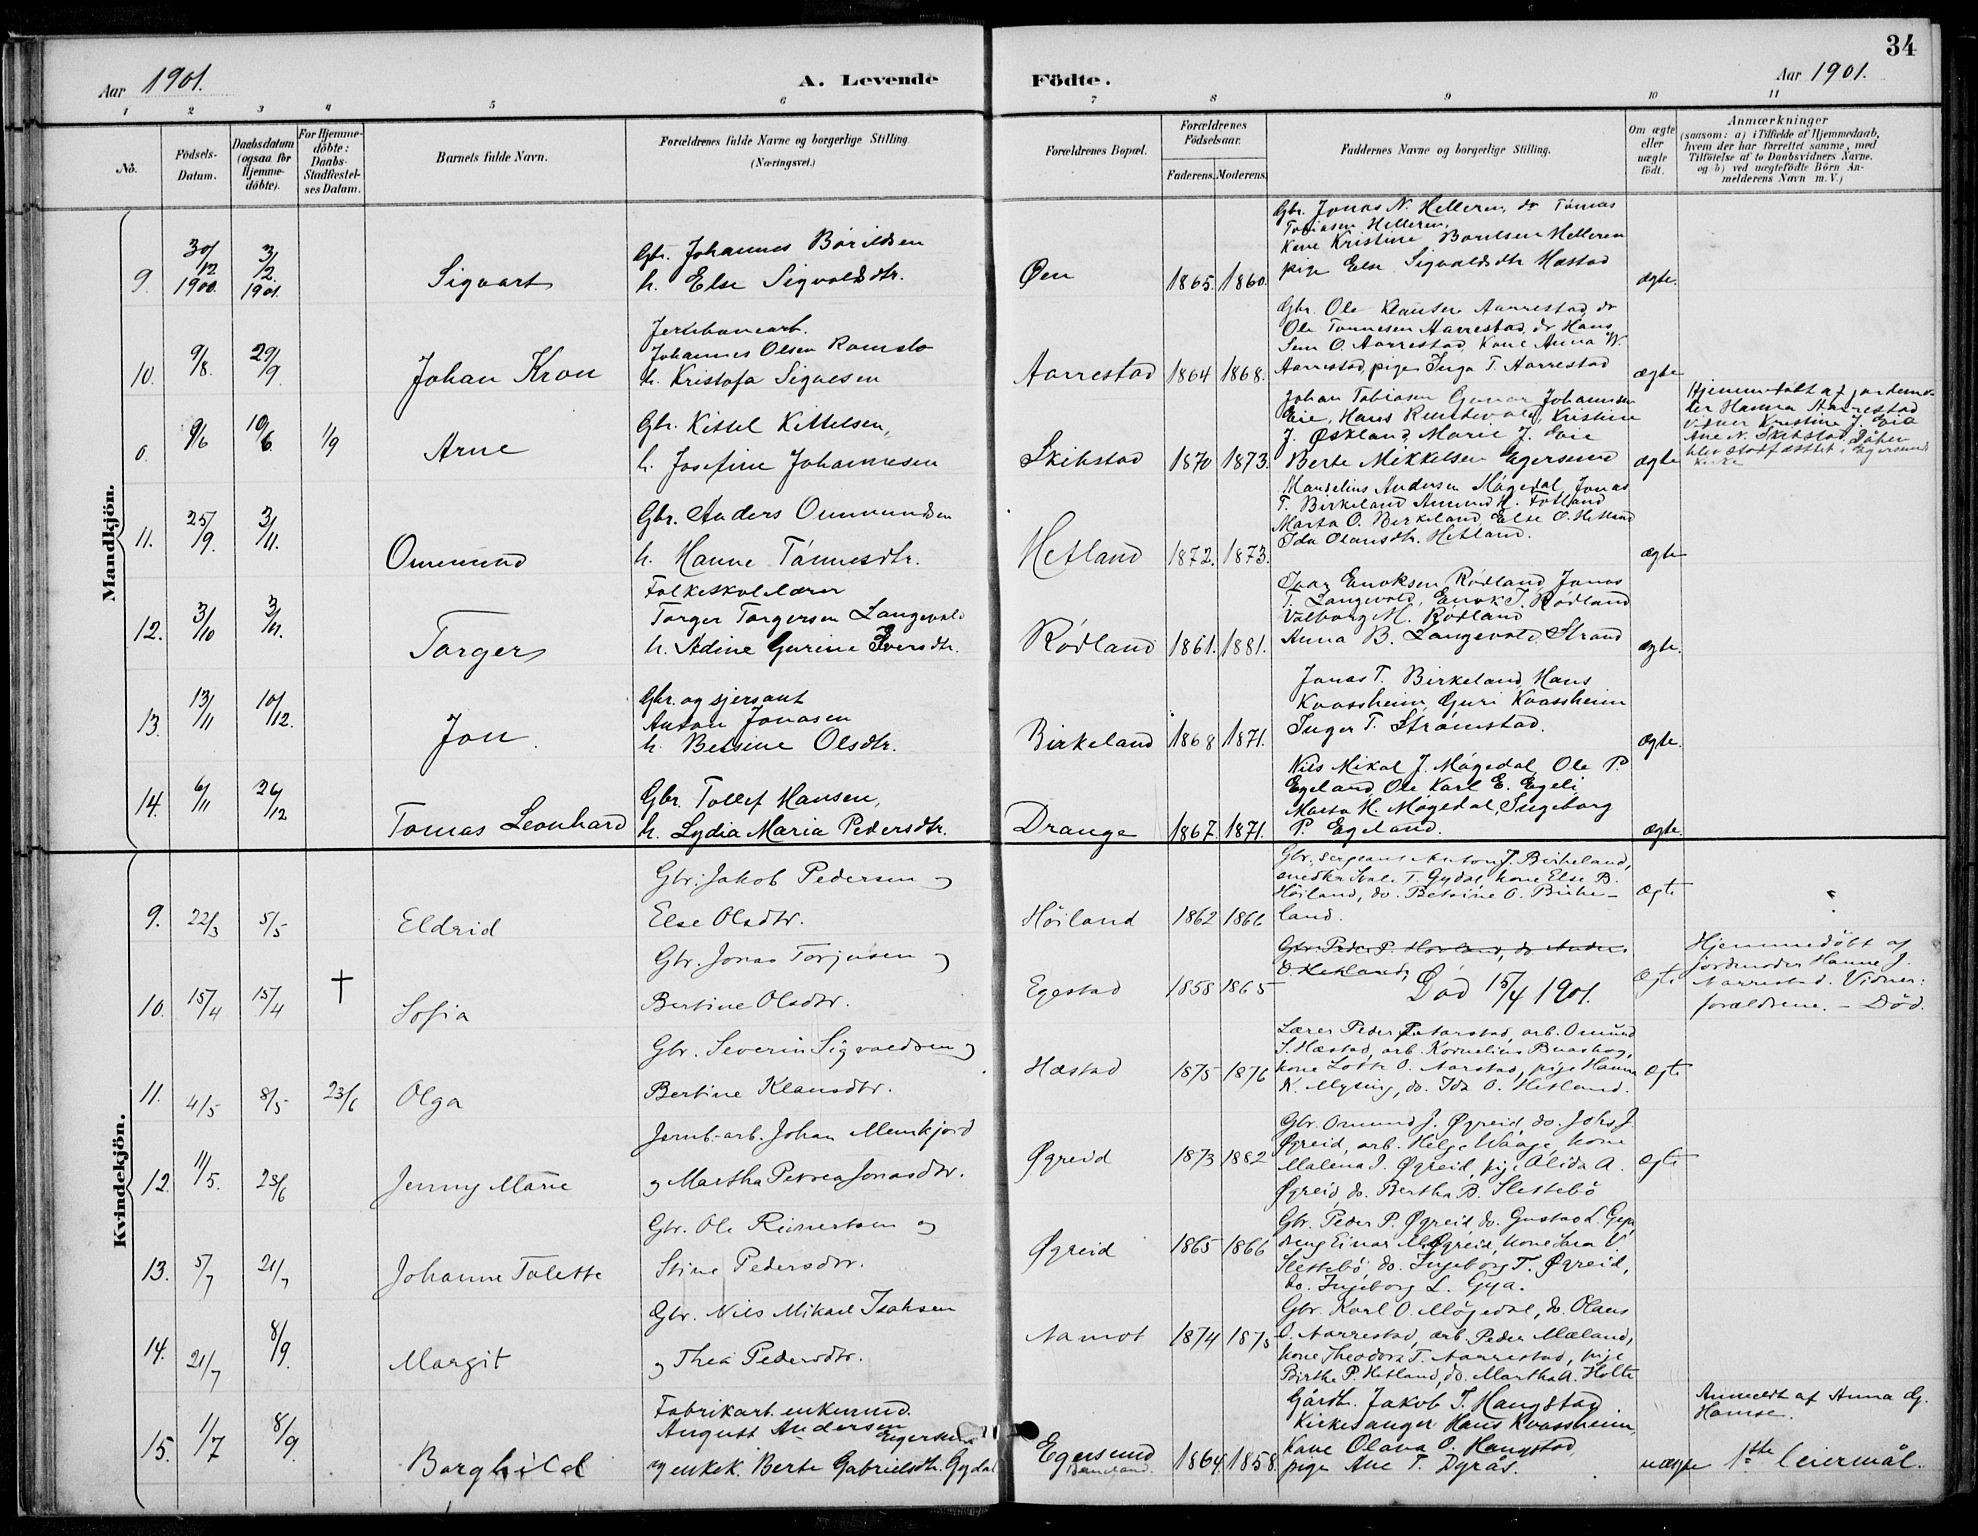 34
Aar 1901.
A. Levende Födte.
Aar 1901.
1 2 3 4 5 6 7 8 9 10 11
No.
Födsels-Datum.
Daabsdatum (ogsaa for Hjemme-döbte).
For Hjemme-döbte: Daabs-Stadfæstel-ses Datum.
Barnets fulde Navn.
Forældrenes fulde Navne og borgerlige Stilling
(Næringsvei.)
Forældrenes Bopæl.
Forældrenes Födselsaar.
Faderens. Moderens.
Faddernes Navne og borgerlige Stilling.
Om ægte eller uægte födt.
Anmærkninger
(saasom: a) i Tilfælde af Hjemmedaab,
hvem der har forrettet samme, med
Tilföielse af to Daabsvidners Navne.
og b) ved uægtefödte Börn An-
melderens Navn m. V.)
Mandkjön.
9. 30/12 1900. 3/2. 1901. Sigvart
Gbr. Johannes Bårildsen
h. Else Sigvaldsdtr.
Øen 1865. 1860.
Gbr. Jonas N. Helleren, do Tomas
Tobiasen Helleren,
Kone Kristine Bårdsen Helleren
pige Else Sigvaldsdtr Hæstad
ægte.
10. 9/8. 29/9. Johan Kron
Jernbanearb.
Johannes Olsen Romslo
h. Kristofa Signesen
Aarrestad 1864 1868.
Gbr. Ole Klausen Aarrestad, do
Ole Tønnesen Aarrestad, do Hans
Sem O. Aarrestad, Kone Anna W.
Aarrestad, pige Inga T. Aarrestad
ægte
0. 9/6 10/6. 1/9 Arne
Gbr. Kittel Kittelsen,
h. Josefine Johannesen
Skibstad 1870 1873.
Johan Tobiasen Gunnar Johannsen
Eie, Hans Rundevold, Kristine
J. Øskland, Marie J. Eie
Berte Mikkelsen Egersund
ægte
Hjemmedøbt af jordemo-
der Hanna Aarrestad
Vidner Kristine J. Eie
Ane N. Skibstad. Dåben
blev stadfæstet i Egersund
kirke
11. 25/9. 3/11. Ommund
Gbr. Anders Ommundsen
h. Hanne Tønnesdtr.
Hetland 1872. 1873.
Mandelius Andersen Møgedal, Jonas
T. Birkeland Amund H. Fotland
Marta O. Birkeland, Else O. Hetland
Ida Olausdtr. Hetland.
ægte
12. 3/10 3/11. Torger
Folkeskolelærer
Torger Torgersen Langevold
h. Adine Gurine Iversdtr.
Rødland 1861. 1881.
Ivar Enoksen Rødland, Jonas
T. Langevold, Enok I. Rødland
Valborg M. Rødland
Anna B. Langevold, Strand
ægte.
13. 13/11 10/12. Jon.
Gbr. og sjersant
Anton Jonasen
h. Betsine Olsdtr.
Birkeland 1868 1871.
Jonas T. Birkeland, Hans
Kvassheim, Guri Kvassheim
Inger T. Strømstad.
ægte.
14. 6/11 26/12 Tomas Leonhard
Gbr. Tollef Hansen,
h. Lydia Maria Pedersdtr.
Drange 1867. 1871.
Nils Mikal J. Møgedal, Ole P.
Egeland, Ole Karl E. Egeli,
Marta M. Møgedal, Ingeborg
P. Egeland.
ægte.
Kvindekjön.
9. 22/3 5/5 Eldrid
Gbr. Jakob Pedersen og
Else Olsdtr.
Höiland 1862 1866
Gbr., sergeant Anton J. Birkeland,
T. Gydal, kone Else B.
Höiland, do. Betsine O. Birke-
land.
ægte
10. 15/4 15/4 † Sofia
Gbr. Jonas Torjusen og
Bertine Olsdtr.
Egestad 1858 1865
Gbr. Peder P. Hovland, do Anders
O. Hetland,
Død 15/4 1901.
ægte
Hjemmedöbt af
jordmoder Hanne J.
Aarrestad. Vidner:
forældrene. – Död.
11. 4/5 8/5 23/6 Olga
Gbr. Severin Sigvaldsen og
Bertine Klausdtr.
Hæstad 1875 1876
Lærer Peder P. Aarstad, arb. Omund
S. Hæstad, arb. Kornelius Buaskog,
kone Lotte O. Aarstad, pige Hanna
K. Mysing, do. Ida O. Hetland.
ægte
12. 11/5. 23/6 Jenny Marie
Jernb.-arb. Johan Memkjord
og Martha Petrea Jonasdtr.
Øgreid 1873 1882
Gbr. Omund J. Øgreid, do. Johs J.
Øgreid, arb. Helge Waage, kone
Malena J. Øgreid, pige Alida A.
Øgreid, do. Bertha B. Slettebö
ægte
13. 5/7 21/7 Johanne Tolette
Gbr. Ole Reinertsen og
Stine Pedersdtr.
Øgreid 1865 1866
Gbr. Peder P. Øgreid, do. Gustav L. Gya,
dreng Einar M. Øgreid, kone Sara V.
Slettebö, do. Ingeborg T. Øgreid,
do. Ingeborg L. Gya.
14. 21/7 8/9. Margit
Gbr. Nils Mikael Isaksen
og Thea Pedersdtr.
Aamot 1874 1875
Gbr. Karl O. Møgedal, do. Olaus
O. Aarrestad, arb. Peder Mæland,
kone Theodora T. Aarrestad, pige
Birthe P. Hetland, do. Martha A. Holte
15. 1/7 8/9. Borghild
Fabrikarb. enkemnd.
August Andersen
Egersund
og enkek. Berte Gabrielsdtr. Gydal
Egersund 1864. 1858.
Gårdbr. Jakob T. Haugstad
Kirkesanger Hans Kvassheim,
Kone Olava O. Haugstad
pige Ane T. Dyrås.
uægte
Anmeldt af Anna G.
Hamse.
1ste leiermål.